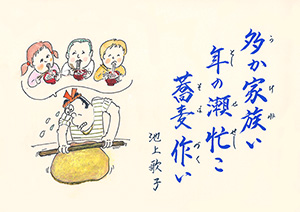 多か家族い
年の瀬忙こ
蕎麦作い
池上歌子